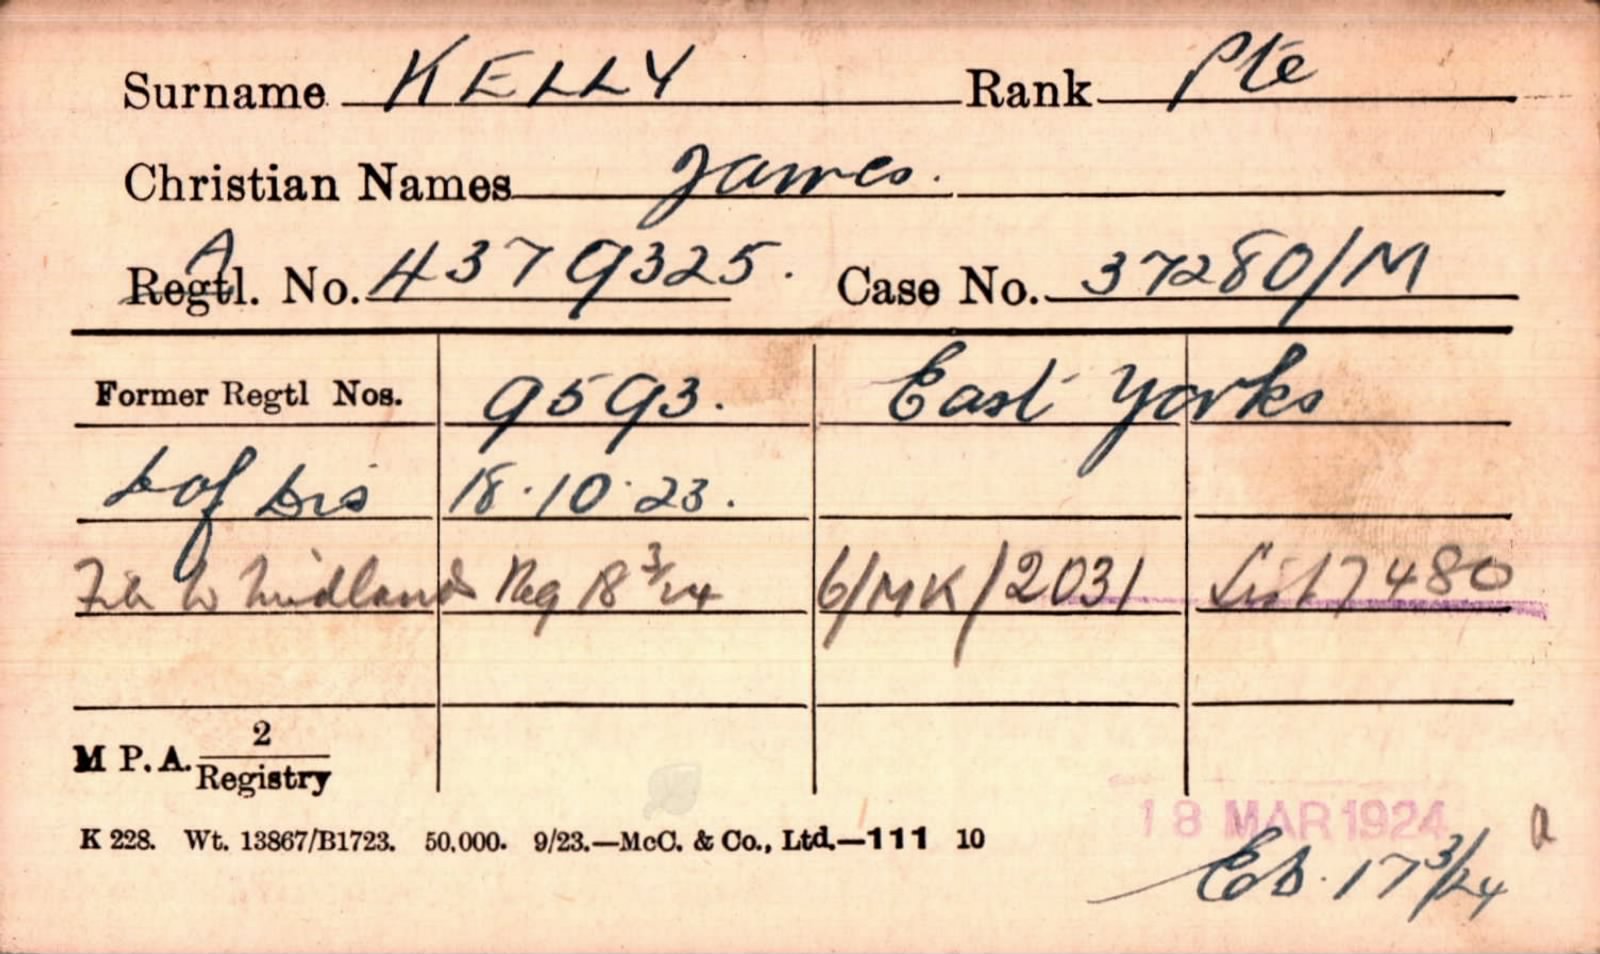 Surname KELLY Rank Pte
Christian Names James.
A
Regtl. No. 4379325. Case No. 37280/M
Former Regtl Nos. 9593. East Yorks
D of Dis 18.10.23.
File to Midlands Reg 18 3/24 6/MK/2031 List 7480
M P.A. 2
Registry
18 MAR 1924
K 228. Wt. 13867/B1723. 50,000. 9/23.—McC. & Co., Ltd.—111 10
a
17 3/24